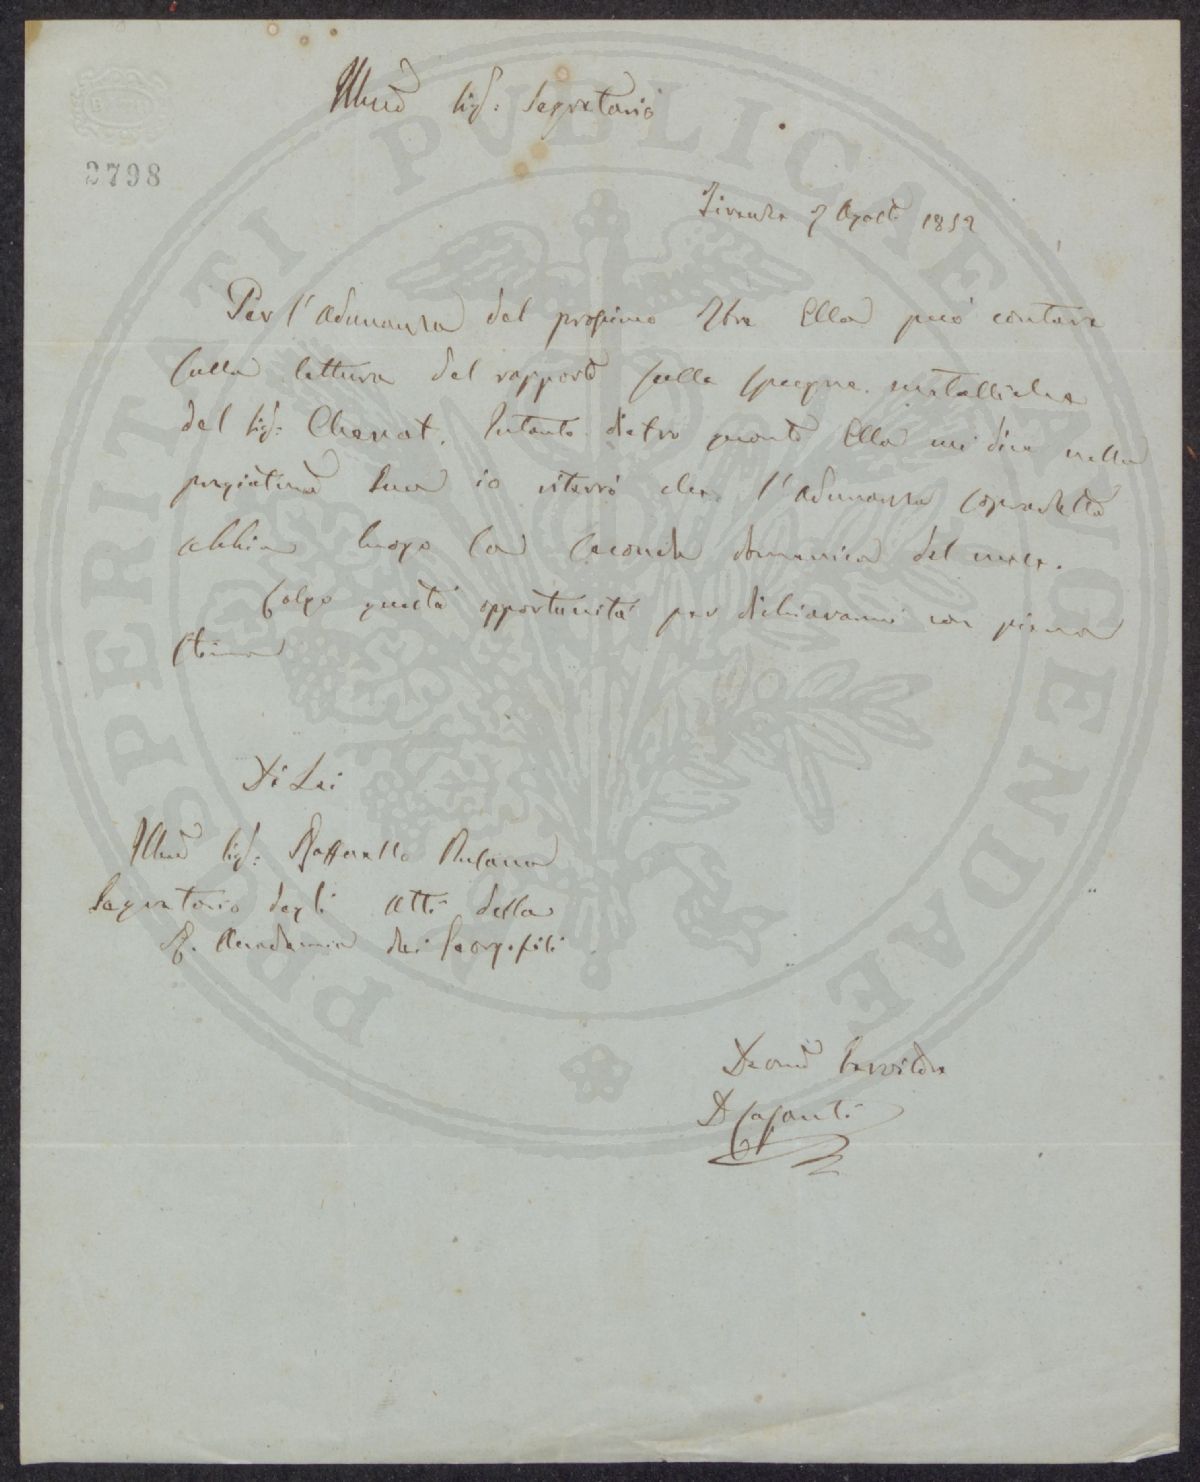 Illmo Sig: Segretario
2798
Firenze 7 Agosto 1852
Per l'Adunanza del prossimo 7bre Ella può contare
sulla lettura del rapporto sulle spugne metalliche
del Sig: Chenot. Intanto dietro quanto Ella mi dice nella
pregiatima Sua io riterrò che l'Adunanza sopradetta
abbia luogo la seconda domenica del mese.
Colgo questa opportunità per dichiararmi con piena
stima
Di Lei
Illmo Sig: Raffaello
Segretario degli Atti della
R. Accademia dei Georgofili
Devmo Servitore
Cafanti
PROSPERITATI PUBLICAE AUGENDAE